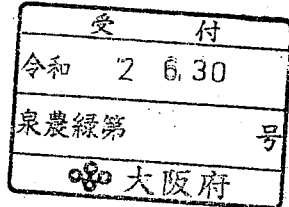 受付
令和 2 6.30
泉農緑第 号
大阪府